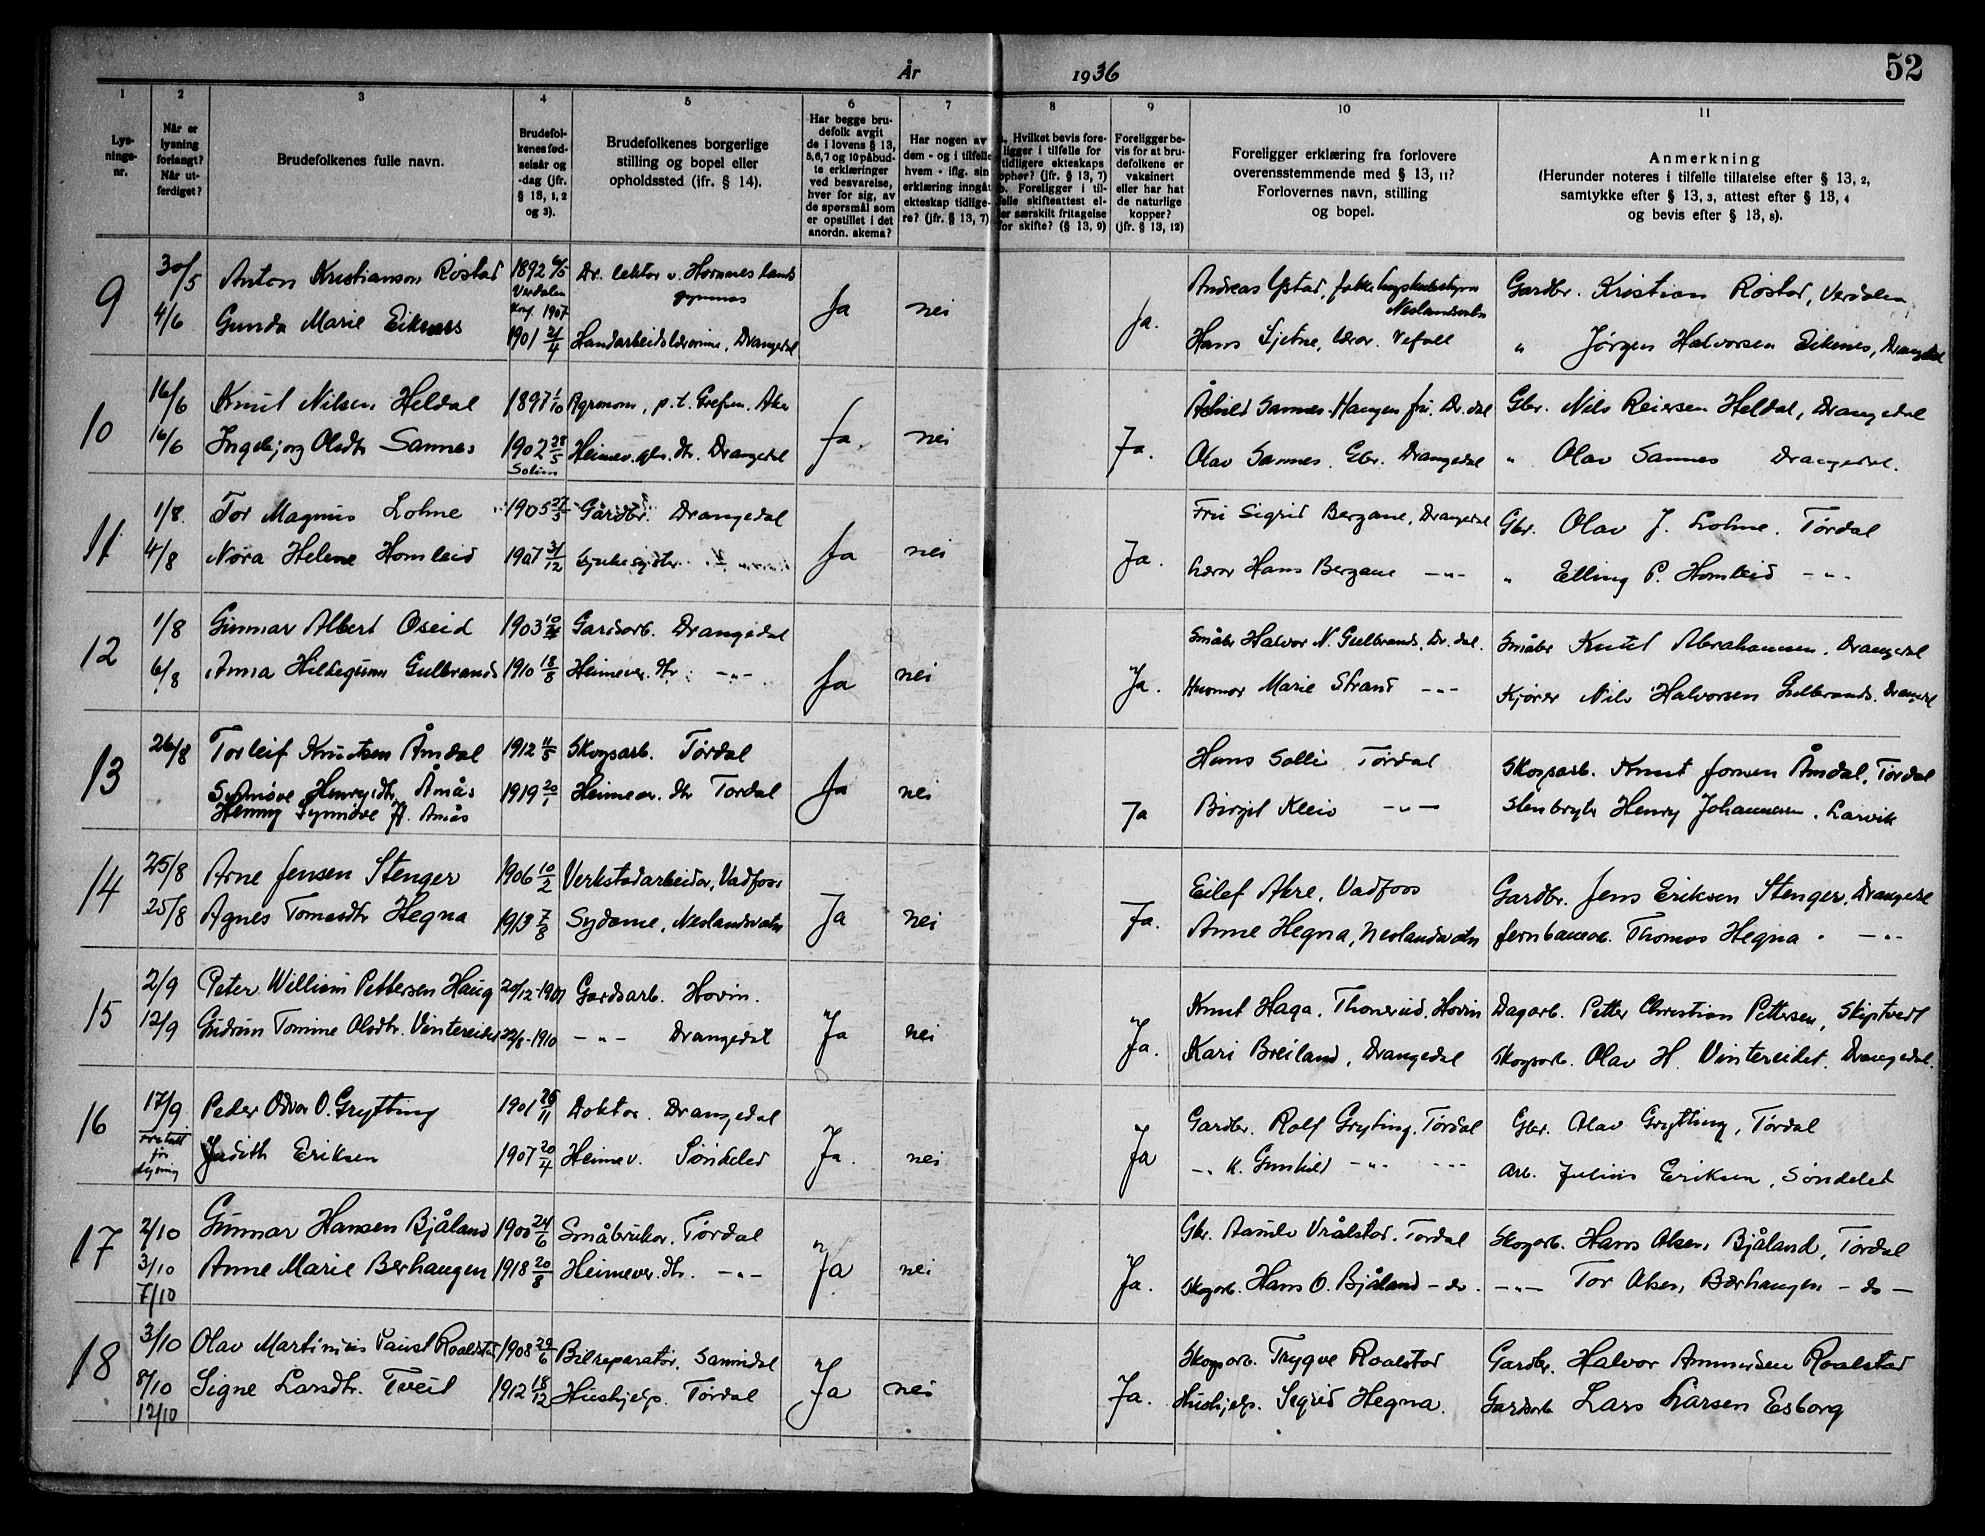 År 1936 52
1 2 3 4 5 6 7 8 9 10 11
Lysnings-nr.
Når er lysning forlangt? Når utferdiget?
Brudefolkenes fulle navn.
Brudefolkenes fødselsår og -dag (jfr. § 13, 1, 2 og 3).
Brudefolkenes borgerlige stilling og bopel eller opholdssted (ifr. § 14).
Har begge brudefolk avgit de i lovens § 13, 5,6,7 og 10 påbudte erklæringer ved besvarelse, hver for sig, av de spørsmål som er opstillet i det anordn. skema?
Har nogen av dem - og i tilfelle hvem - iflg. sin erklæring inngått ekteskap tidligere? (jfr. § 13, 7)
a. Hvilket bevis foreligger i tilfelle for tidligere ekteskaps ophør? (jfr. § 13, 7) b. Foreligger i tilfelle skifteattest eller særskilt fritagelse for skifte? (§ 13, 9)
Foreligger bevis for at brudefolkene er vaksinert eller har hat de naturlige kopper? (jfr. § 13, 12)
Foreligger erklæring fra forlovere overensstemmende med § 13, 11? Forlovernes navn, stilling og bopel.
Anmerkning (Herunder noteres i tilfelle tillatelse efter § 13, 2, samtykke efter § 13, 3, attest efter § 13, 4 og bevis efter § 13, 8).
9 30/5 Anton Kristianson Røstad 1892 6/5 Verdalen Dr. lektor v. Hornnes lands gymnas Ja nei Ja. Andreas Ystad, Neslandsvatn Gardbr. Kristian Røstad, Verdalen
4/6 Gunda Marie Eiknes 1901 21/4 Handarbeidslærerinne, Drangedal Hans Sjetne, lærer. " Jørgen Halvorsen Eiknes, Drangedal
10 16/6 Knut Nilsen Heldal 1897 1/10 Agronom, p.t. Grefsen. Aker Ja. nei Ja. Sannes-Haugen fru. Dr.dal Gbr. Nils Reiersen Heldal, Drangedal
16/6 Ingebjørg Olsdtr Sannes 1902 28/5 Heimev. gbr. dtr. Drangedal Olav Sannes. Gbr. Drangedal " Olav Sannes Drangedal.
11 1/8. Tor Magnus Lohne 1905 27/5 Gardbr. Drangedal Ja nei Ja. Fru Sigrid Bergane, Drangedal Gbr. Olav J. Lohne. Tørdal
4/8 Nora Helene Homleid 1907 31/12 Lærer Hans Bergane -"- " Elling P. Homleid -"-
12 1/8 Gunnar Albert Oseid 1903 Gardsarb. Drangedal Ja nei Ja. Småbr Halvor N. Gulbrands. Dr.dal. Småbr Knut Abrahamsen. Drangedal
6/8 Anna Hildegunn Gulbrands 1910 18/8 Heimev. dtr. -"- Marie Strand -"- Kjører Nils Halvorsen Gulbrands. Drangedal
13 26/8 Torleif Knutsen Åmdal 1912 11/5 Skogsarb. Tørdal Ja nei Ja Hans Solli Tørdal Skogsarb. Knut Jonsen Åmdal, Tørdal
Synnøve Henrysdtr. Åmås 1919 20/1 Heimev. dtr Tørdal Birgit Kleiv -"- Stenbryter Henry Johannesen. Larvik
Henny Synnøve H. Åmås
14 25/8 Arne Jensen Stenger 1906 10/2 Verkstadarbeidar, Vadfoss Ja nei Ja. Eilef Akre, Vadfoss Gardbr. Jens Eriksen Stenger, Drangedal
25/8 Agnes Tomasdtr Hegna 1913 7/8 Sydame, Neslandsvatn Anne Hegna, Neslandsvatn Jernbanearb. Thomas Hegna -"-
15 2/9 Peter William Pettersen Haug 20/12-1901 Gardsarb. Hovin. Ja nei Ja. Knut Haga. Thonerud. Hovin Dagarb. Petter Christian Pettersen, Skiptvedt
12/9 Gudrun Tomine Olsdtr. Vintereidet 22/8-1910 -"- Drangedal Kari Breiland, Drangedal Skogsarb. Olav H. Vintereidet. Drangedal.
16 17/9 Peder Odvar O. Grytting 1901 26/11 Doktor. Drangedal Ja. nei Ja Gardbr. Rolf Gryting. Tørdal Gbr. Olav Grytting, Tørdal
Fritatt for lysning Judith Eriksen 1907 20/4 Heimev. Søndeled -"- k. Gunhild -"- -"- Arb. Julius Eriksen, Søndeled
17 2/10 Gunnar Hansen Bjåland 1900 24/6 Småbruker. Tørdal Ja nei Ja. Gbr. Aamund Vrålstad. Tørdal Skogarb. Hans Olsen Bjåland, Tørdal
3/10 Anne Marie Berhaugen 1918 20/8 Heimev. dtr. -"- Skogarb. Hans O. Bjåland - do - -"- Tor Olsen, Bærhaugen - do -
7/10
18 3/10 Olav Martinius Faust Roalstad 1908 29/6 Bilreparatør, Sannidal Ja nei Ja. Skogsarb. Trygve Roalstad Gardbr. Halvor Ammundsen Roalstad
8/10 Signe Larsdtr. Tveit 1912 18/12 Hushjelp. Tørdal Hushjelp. Sigrid Hegna. Gardsarb Lars Larsen Esborg
12/10